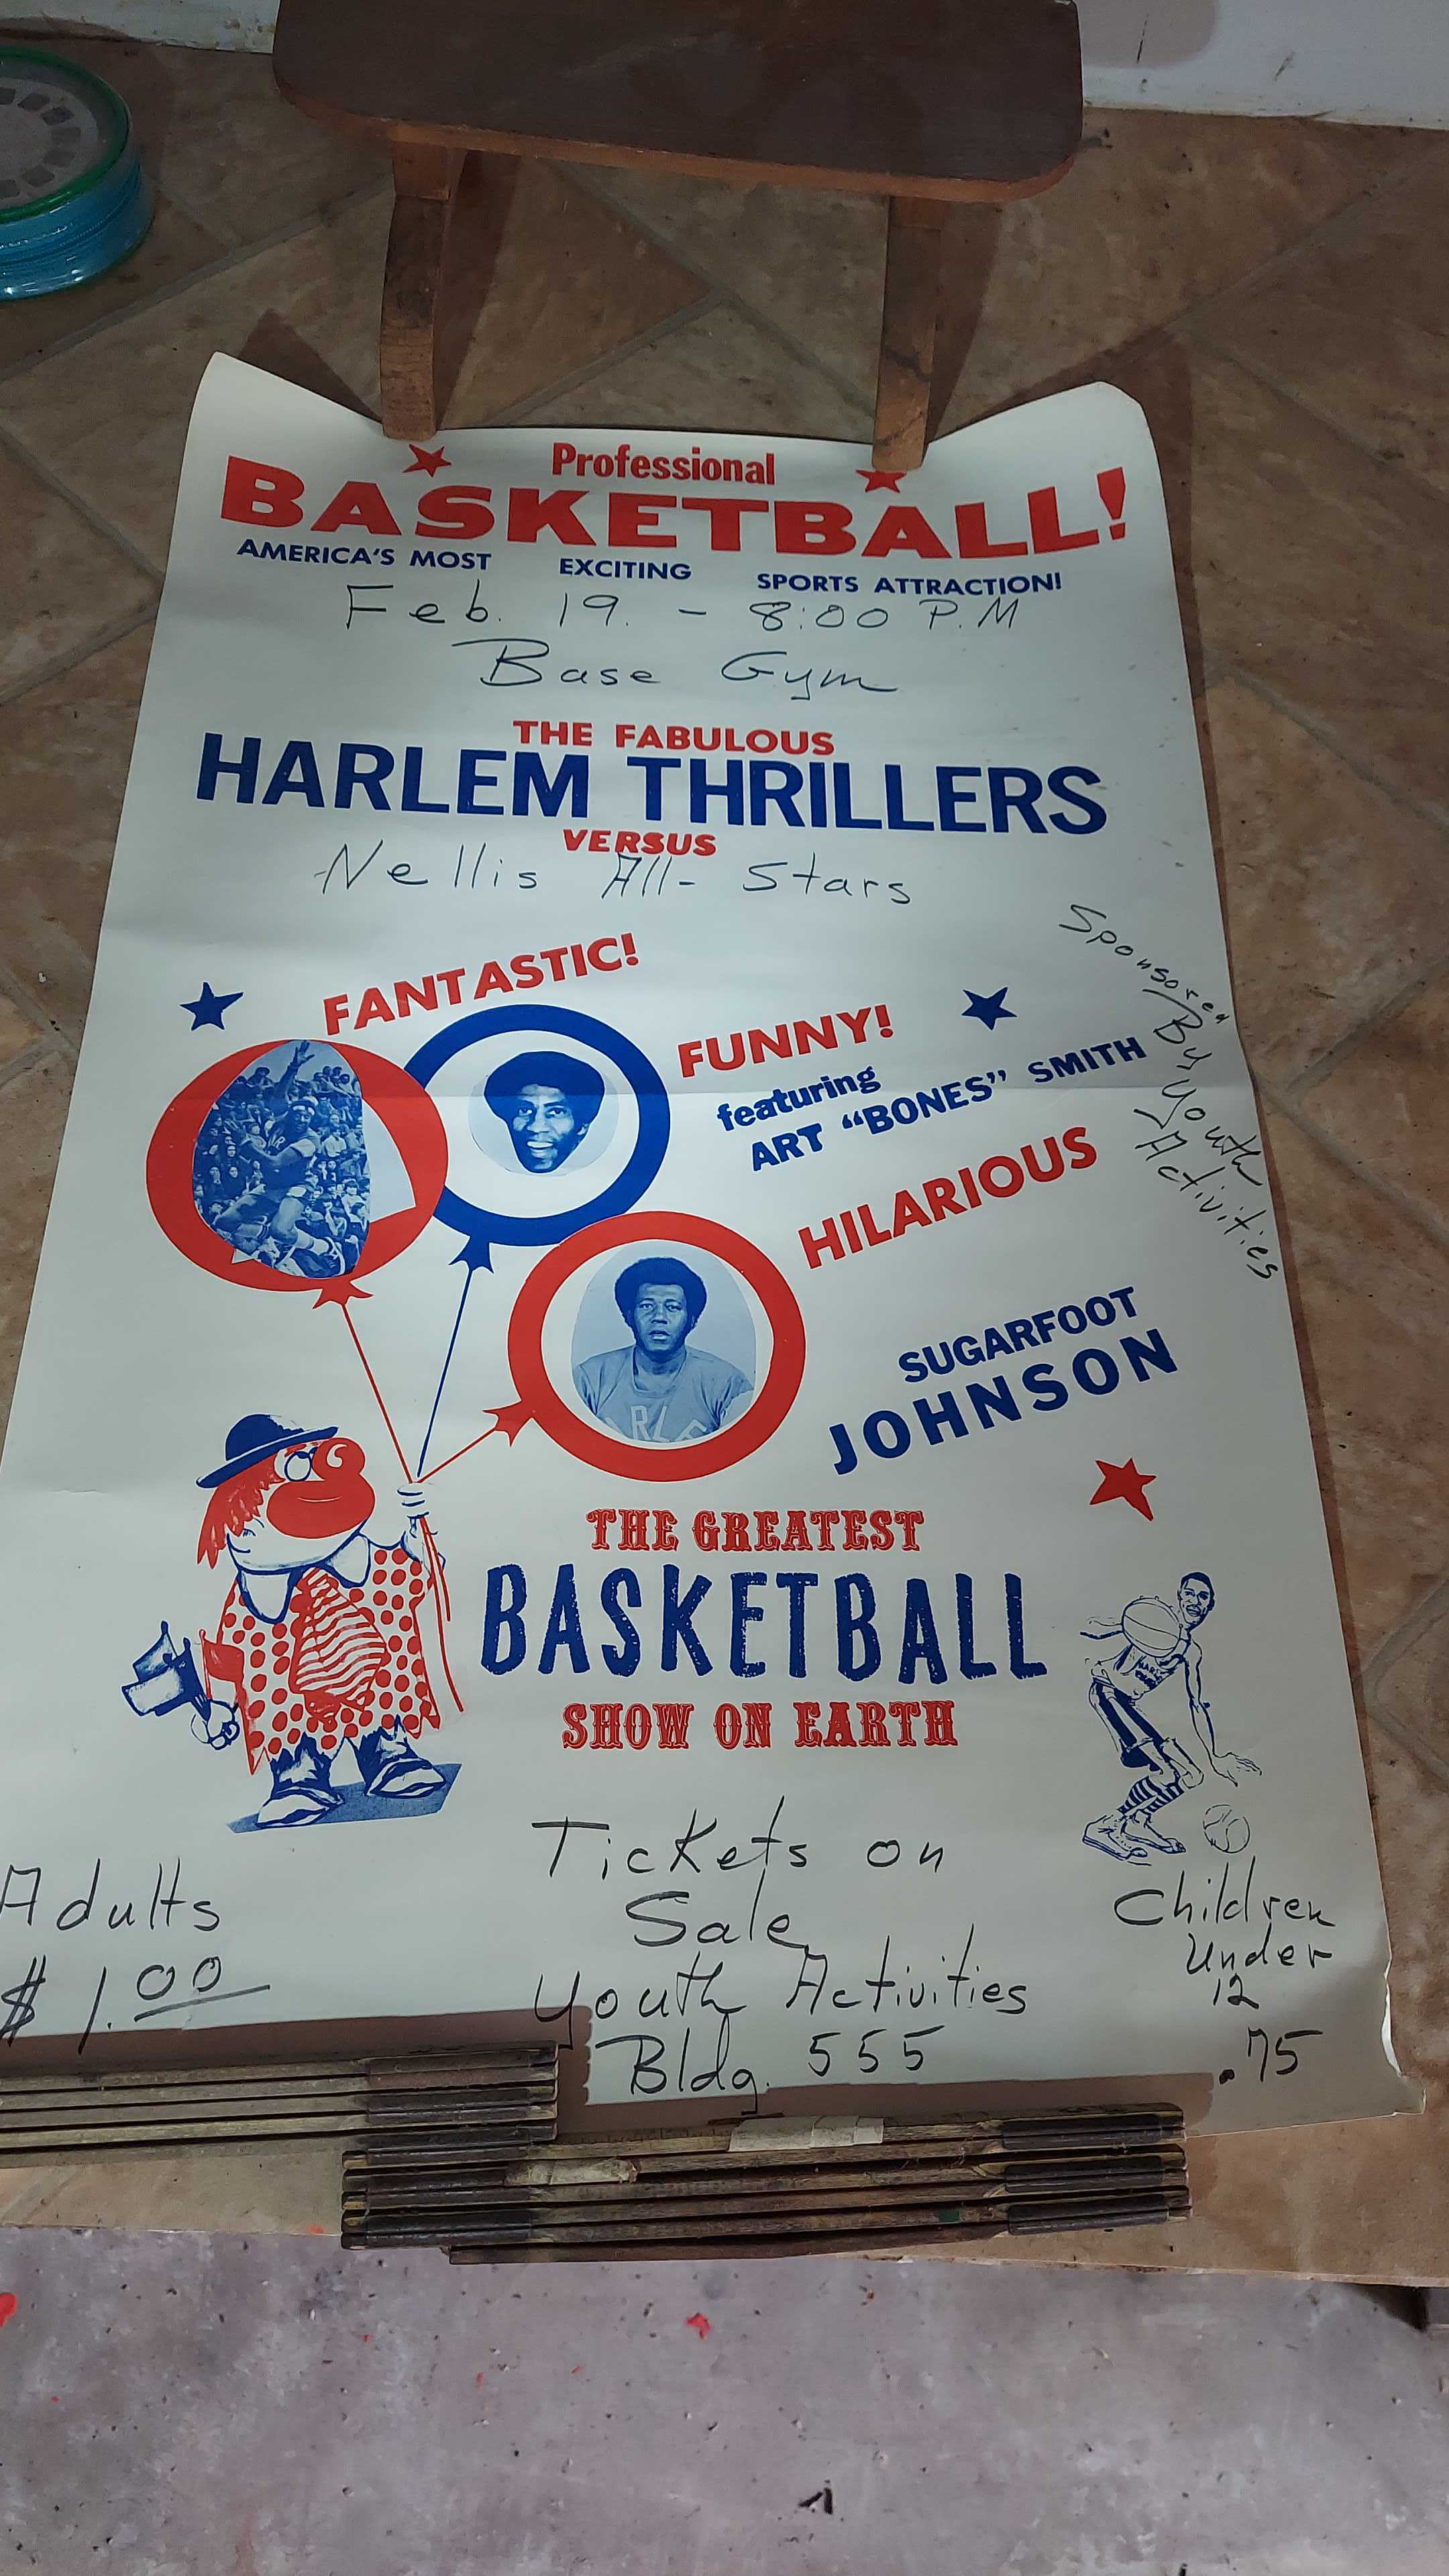 Professional
BASKETBALL!
AMERICA'S MOST EXCITING SPORTS ATTRACTION!
Feb. 19. - 8:00 P.M
Base Gym
THE FABULOUS
HARLEM THRILLERS
VERSUS
Nellis All- Stars
Sponsored
By Youth
Activities
FANTASTIC!
FUNNY!
featuring
ART "BONES" SMITH
HILARIOUS
SUGARFOOT
JOHNSON
RLE
THE GREATEST
BASKETBALL
SHOW ON EARTH
Adults
$1.00
Tickets on
Sale
Youth Activities
Bldg. 555
Children
Under
12
.75